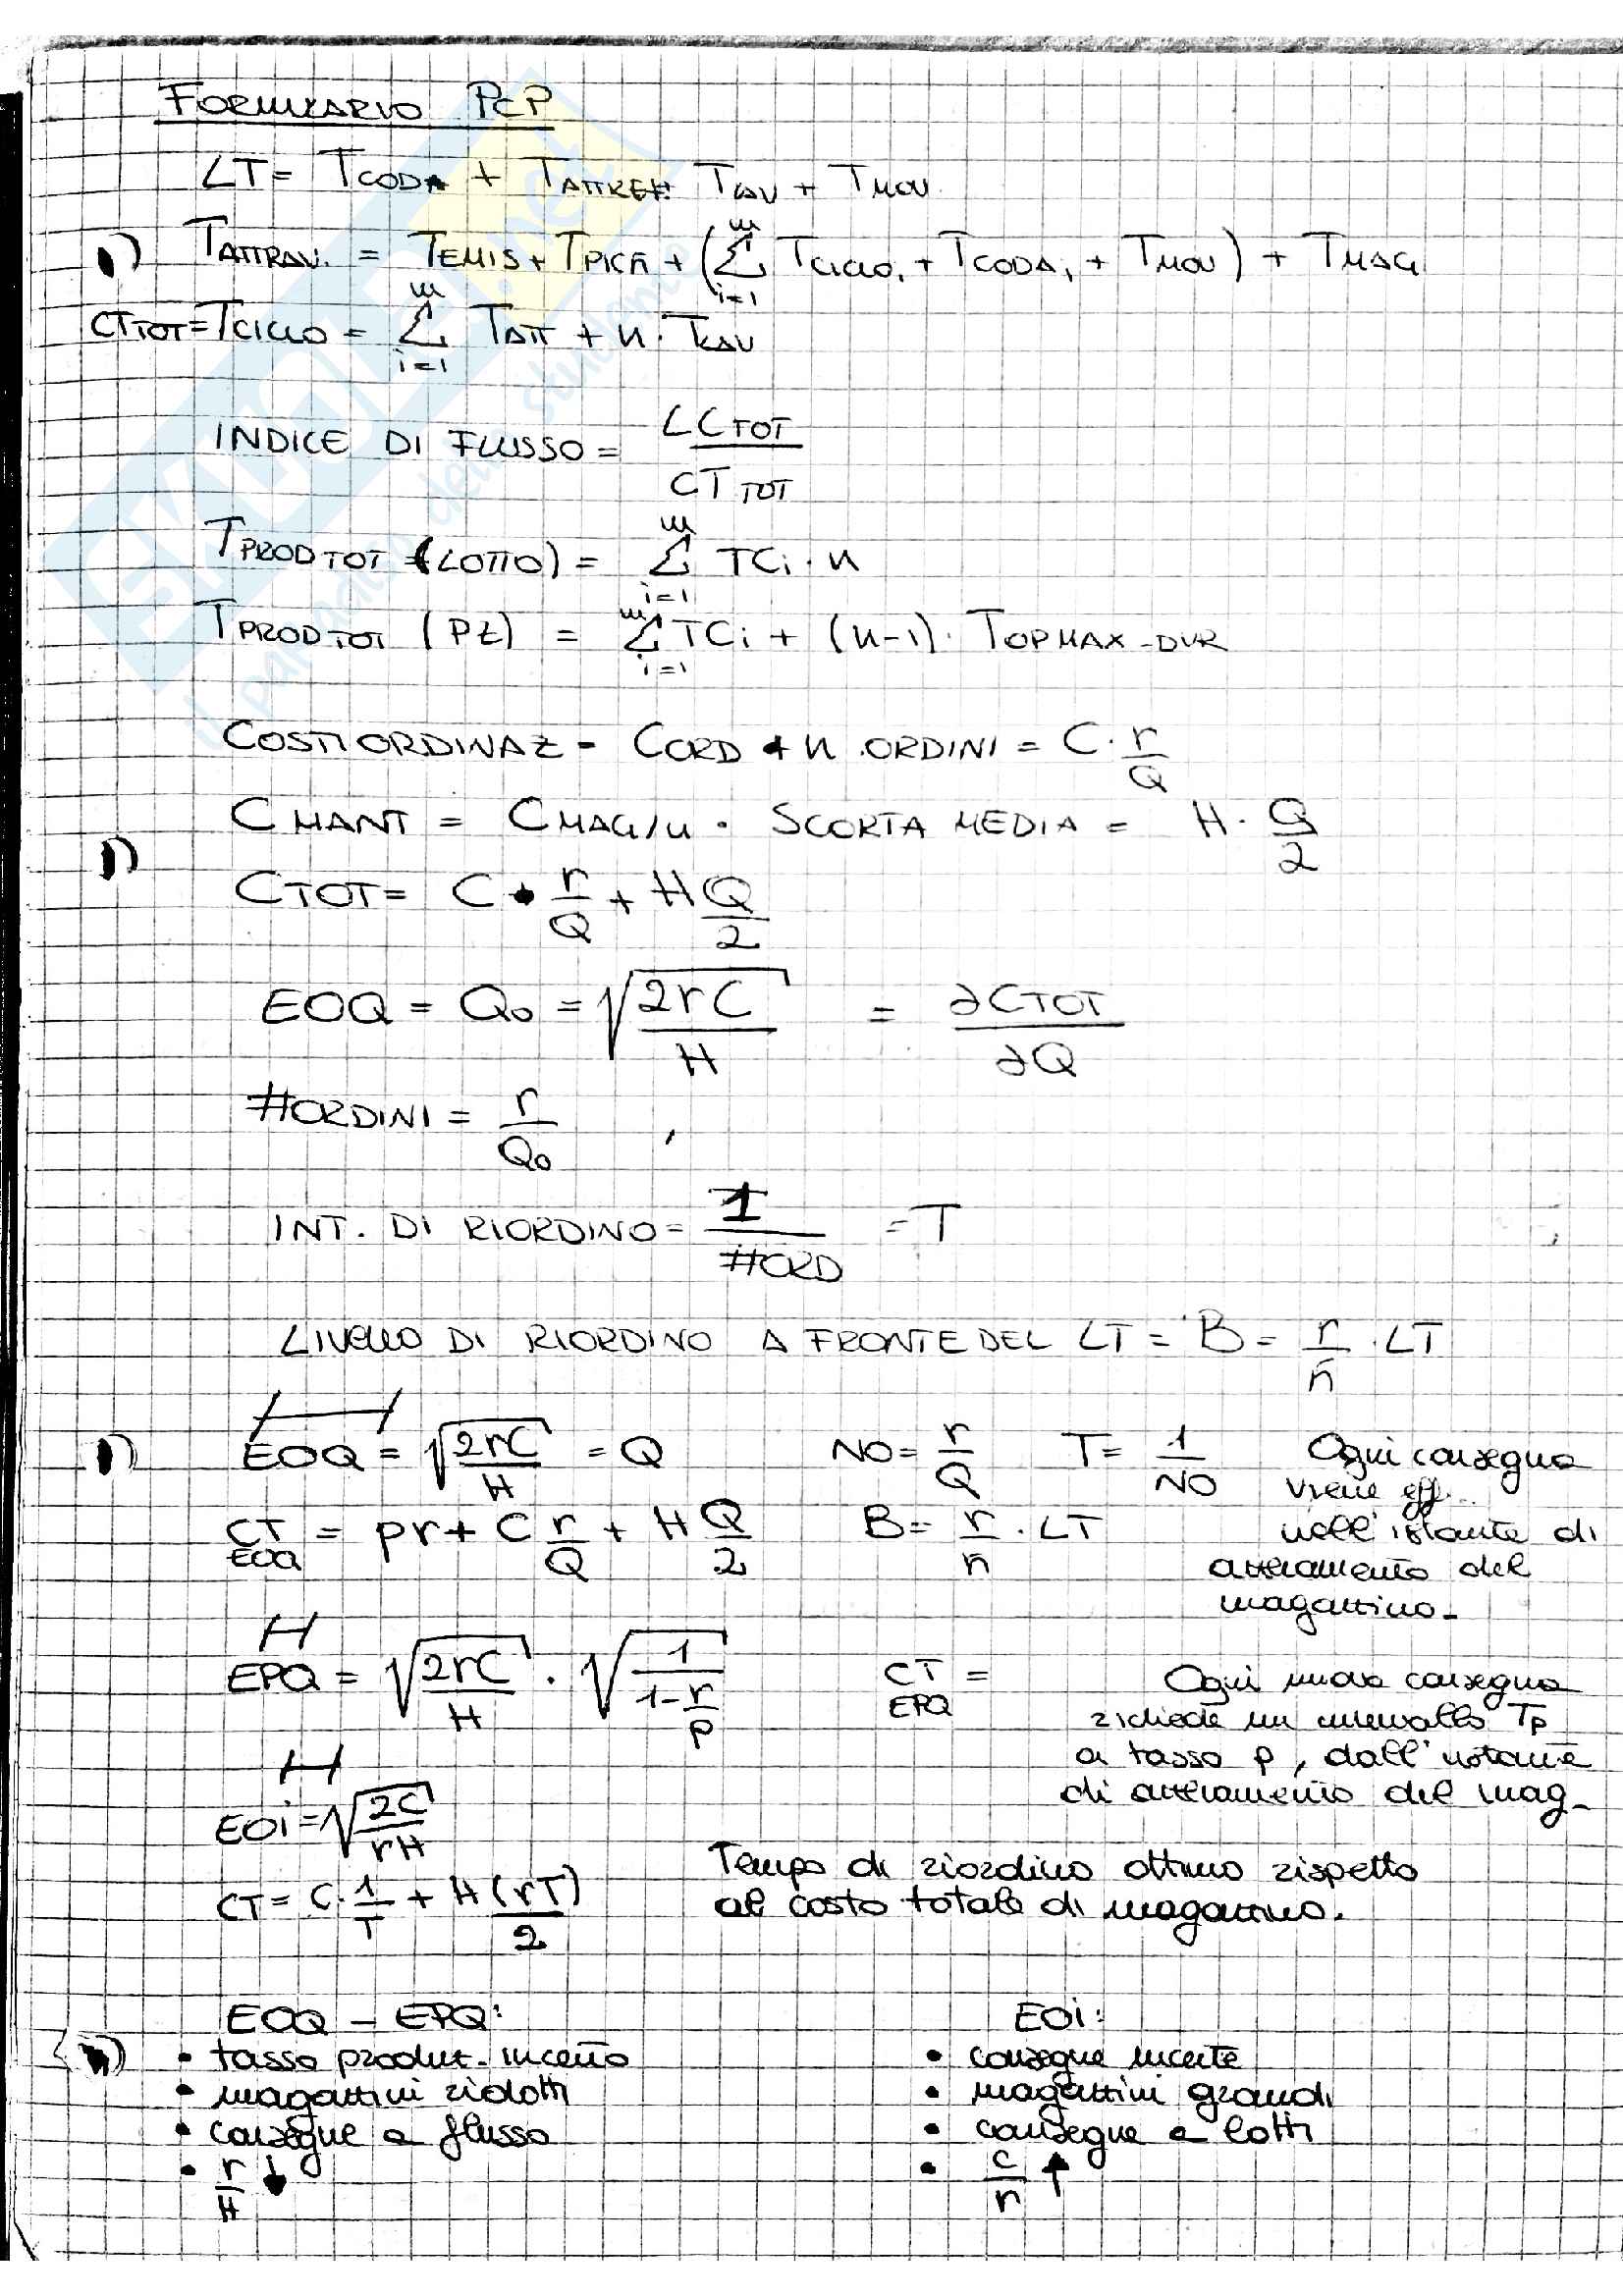 FORMULARIO PCP
LT = TCODA + TATTREZ. TLAV + TMOV.
1) TATTRAV. = TEMIS + TPICK + (m Σ i=1 TCICLO i + TCODA i + TMOV) + TMAG
CTTOT = TCICLO = m Σ i=1 TATT + n · TLAV
INDICE DI FLUSSO = LCTOT / CTTOT
TPRODTOT (LOTTO) = m Σ i=1 TCi · n
TPRODTOT (PZ) = m Σ i=1 TCi + (n-1) · TOPMAX-DUR
COSTI ORDINAZ = CORD * n. ORDINI = C · r/Q
CMANT = CMAG/U · SCORTA MEDIA = H · Q/2
1)
CTOT = C · r/Q + H Q/2
EOQ = Q0 = √(2rC/H) = ∂CTOT/∂Q
#ORDINI = r/Q0
INT. DI RIORDINO = 1/#ORD = T
LIVELLO DI RIORDINO A FRONTE DEL LT = B = r/n · LT
1) EOQ = √(2rC/H) = Q NO = r/Q T = 1/NO Ogni consegna
viene eff.
CT EOQ = pr + C r/Q + H Q/2 B = r/n · LT nell'istante di
azzeramento del
magazzino.
EPQ = √(2rC/H) · √(1/(1-r/p)) CT EPQ = Ogni nuova consegna
richiede un intervallo Tp
a tasso p, dall'istante
di azzeramento del mag.
EOi = √(2C/rH)
Tempo di riordino ottimo rispetto
CT = C · 1/T + H (rT)/2 al costo totale di magazzino.
EOQ – EPQ: EOi:
• tasso produz. incerto • consegne incerte
• magazzini ridotti • magazzini grandi
• consegne a flusso • consegne a lotti
• r/H ↓ • C/r ↑